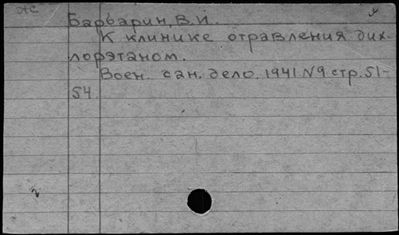 Барварин, В.И.
К клинике отравления дих-
лорэтаном.
Воен. сан. дело. 1941 №9 стр. 51-
54